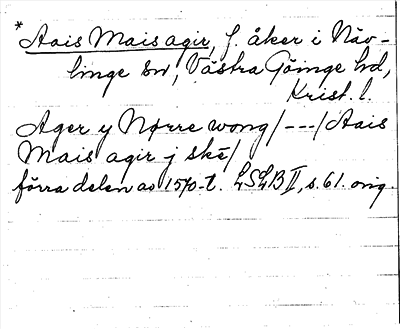 * Aais Mais agir, f. åker i Näv-
linge sn, Västra Göinge hd,
Krist. l.
Ager y Nørre wong / --- / Aais
Mais agir j ske /
förra delen av 1570-t. LSLB II, s. 61. orig.